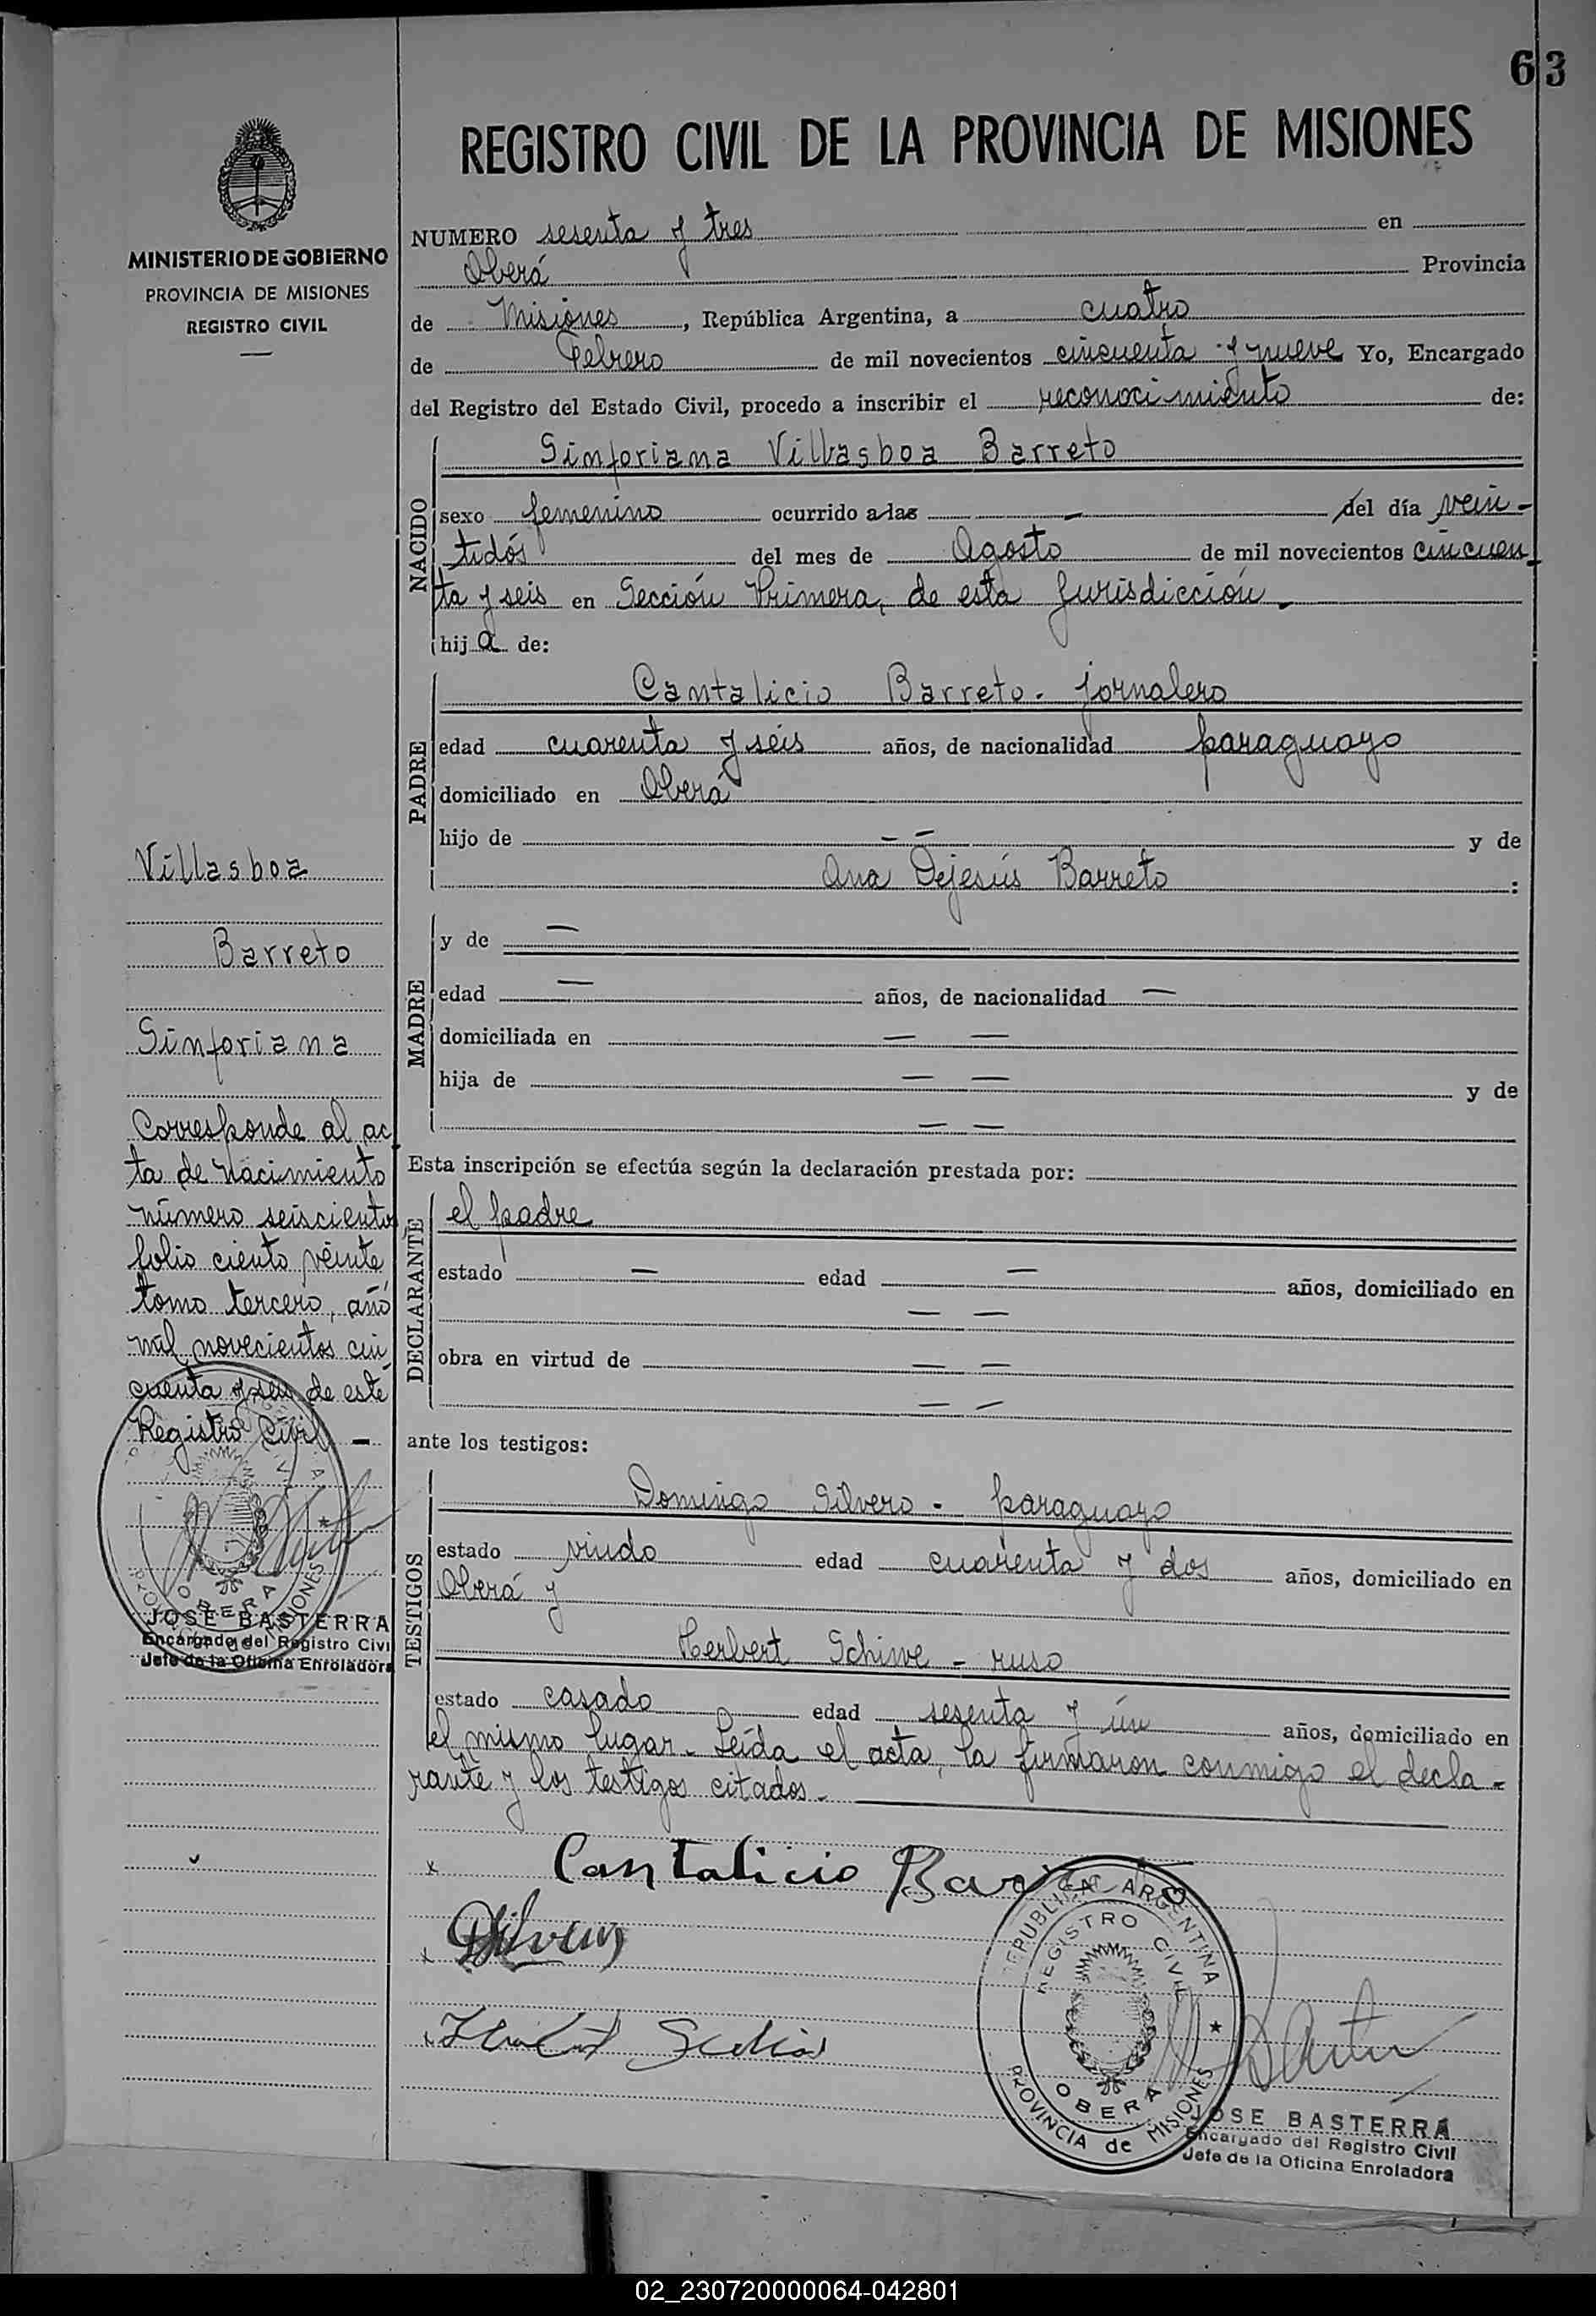 63
REGISTRO CIVIL DE LA PROVINCIA DE MISIONES
MINISTERIO DE GOBIERNO
PROVINCIA DE MISIONES
REGISTRO CIVIL
NUMERO sesenta y tres en
Oberá Provincia
de Misiones, República Argentina, a cuatro
de Febrero de mil novecientos cincuenta y nueve Yo, Encargado
del Registro del Estado Civil, procedo a inscribir el reconocimiento de:
NACIDO
Sinforiana Villasboa Barreto
sexo femenino ocurrido a las - del día vein-
tidós del mes de Agosto de mil novecientos cincuen
ta y seis en Sección Primera, de esta Jurisdicción.
hija de:
PADRE
Cantalicio Barreto - jornalero
edad cuarenta y seis años, de nacionalidad paraguayo
domiciliado en Oberá
hijo de — — y de
Ana Dejesús Barreto :
MADRE
y de —
edad — años, de nacionalidad —
domiciliada en — —
hija de — — y de
— —
Esta inscripción se efectúa según la declaración prestada por:
DECLARANTE
el padre
estado — edad — años, domiciliado en
— —
obra en virtud de — —
— —
ante los testigos:
TESTIGOS
Domingo Silvero - paraguayo
estado viudo edad cuarenta y dos años, domiciliado en
Oberá y
Herbert Schiwe - ruso
estado casado edad sesenta y ún años, domiciliado en
el mismo lugar. Leída el acta, la firmaron conmigo el decla-
rante y los testigos citados.
Villasboa
Barreto
Sinforiana
Corresponde al ac
ta de Nacimiento
número seiscientos
folio ciento veinte
tomo tercero, año
mil novecientos cin
cuenta y seis de este
Registro Civil -
JOSE BASTERRA
Encargado del Registro Civi
Jefe de la Oficina Enroladora
x Cantalicio Barreto
x
x
REPUBLICA ARGENTINA
REGISTRO CIVIL
OBERA
PROVINCIA de MISIONES
JOSE BASTERRA
Encargado del Registro Civil
Jefe de la Oficina Enroladora
02_230720000064-042801